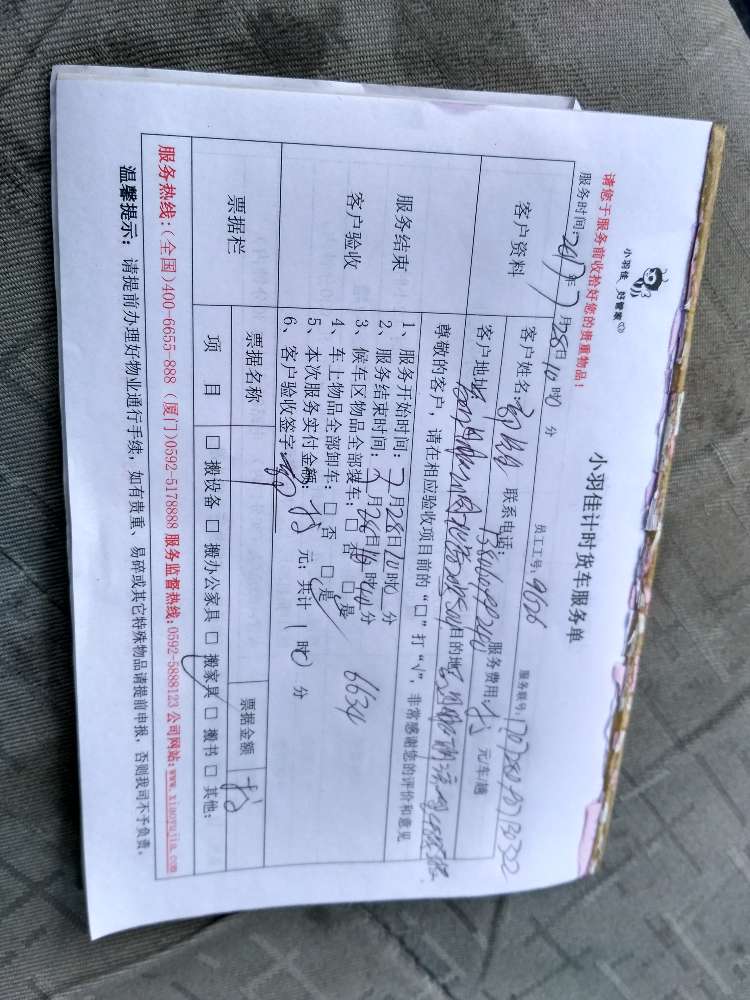 小羽佳 好管家
小羽佳计时货车服务单
请您于服务前收拾好您的贵重物品！
员工工号：9626
服务联号：
服务时间：2017年7月28日10时0分
客户资料
客户姓名： 联系电话： 服务费用 元/车/趟
客户地址 目的地
尊敬的客户，请在相应验收项目前的“□”打“√”，非常感谢您的评价和意见
服务结束
客户验收
1、服务开始时间：7月28日10时0分
2、服务结束时间：7月28日 时 分
3、候车区物品全部装车：□ 否 □ 是
4、车上物品全部卸车：□ 否 □ 是
6634
5、本次服务实付金额： 元；共计 1 时0 分
6、客户验收签字：
票据栏
票据名称 票据金额
项 目 □ 搬设备 □ 搬办公家具 □ 搬家具 □ 搬书 □ 其他：
服务热线：(全国)400-6655-888 (厦门)0592-5178888 服务监督热线：0592-5888123 公司网站：www.xiaoyujia.com
温馨提示：请提前办理好物业通行手续，如有贵重、易碎或其它特殊物品请提前申报，否则我司不予负责。